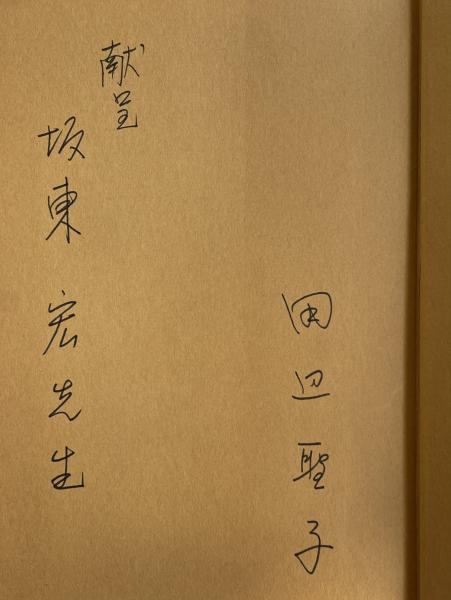 田辺聖子
献呈
坂東 宏先生